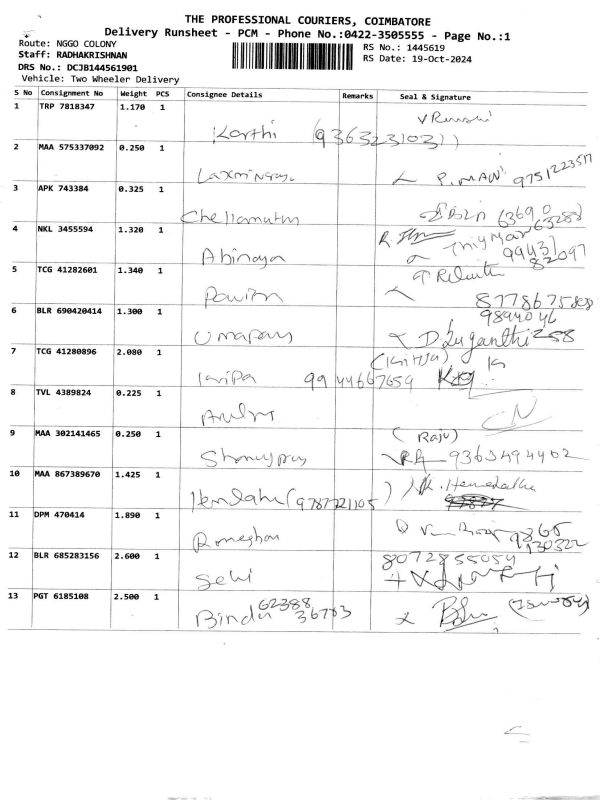 THE PROFESSIONAL COURIERS, COIMBATORE
Delivery Runsheet - PCM - Phone No.:0422-3505555 - Page No.:1
Route: NGGO COLONY
Staff: RADHAKRISHNAN
DRS No.: DCJB144561901
Vehicle: Two Wheeler Delivery
RS No.: 1445619
RS Date: 19-Oct-2024
S No Consignment No Weight PCS Consignee Details Remarks Seal & Signature
1 TRP 7818347 1.170 1 Karthi
2 MAA 575337092 0.250 1 P.MANI 9751223517
3 APK 743384 0.325 1 Chellamuthu 63690 63288
4 NKL 3455594 1.320 1 Abinaya 99437 82097
5 TCG 41282601 1.340 1
6 BLR 690420414 1.300 1
7 TCG 41280896 2.080 1 9944667659
8 TVL 4389824 0.225 1
9 MAA 302141465 0.250 1 (Raju) 9363494402
10 MAA 867389670 1.425 1 (9787721105)
11 DPM 470414 1.890 1 9865 130322
12 BLR 685283156 2.600 1 Selvi 8072855054
13 PGT 6185108 2.500 1 Bindu 62388 36783